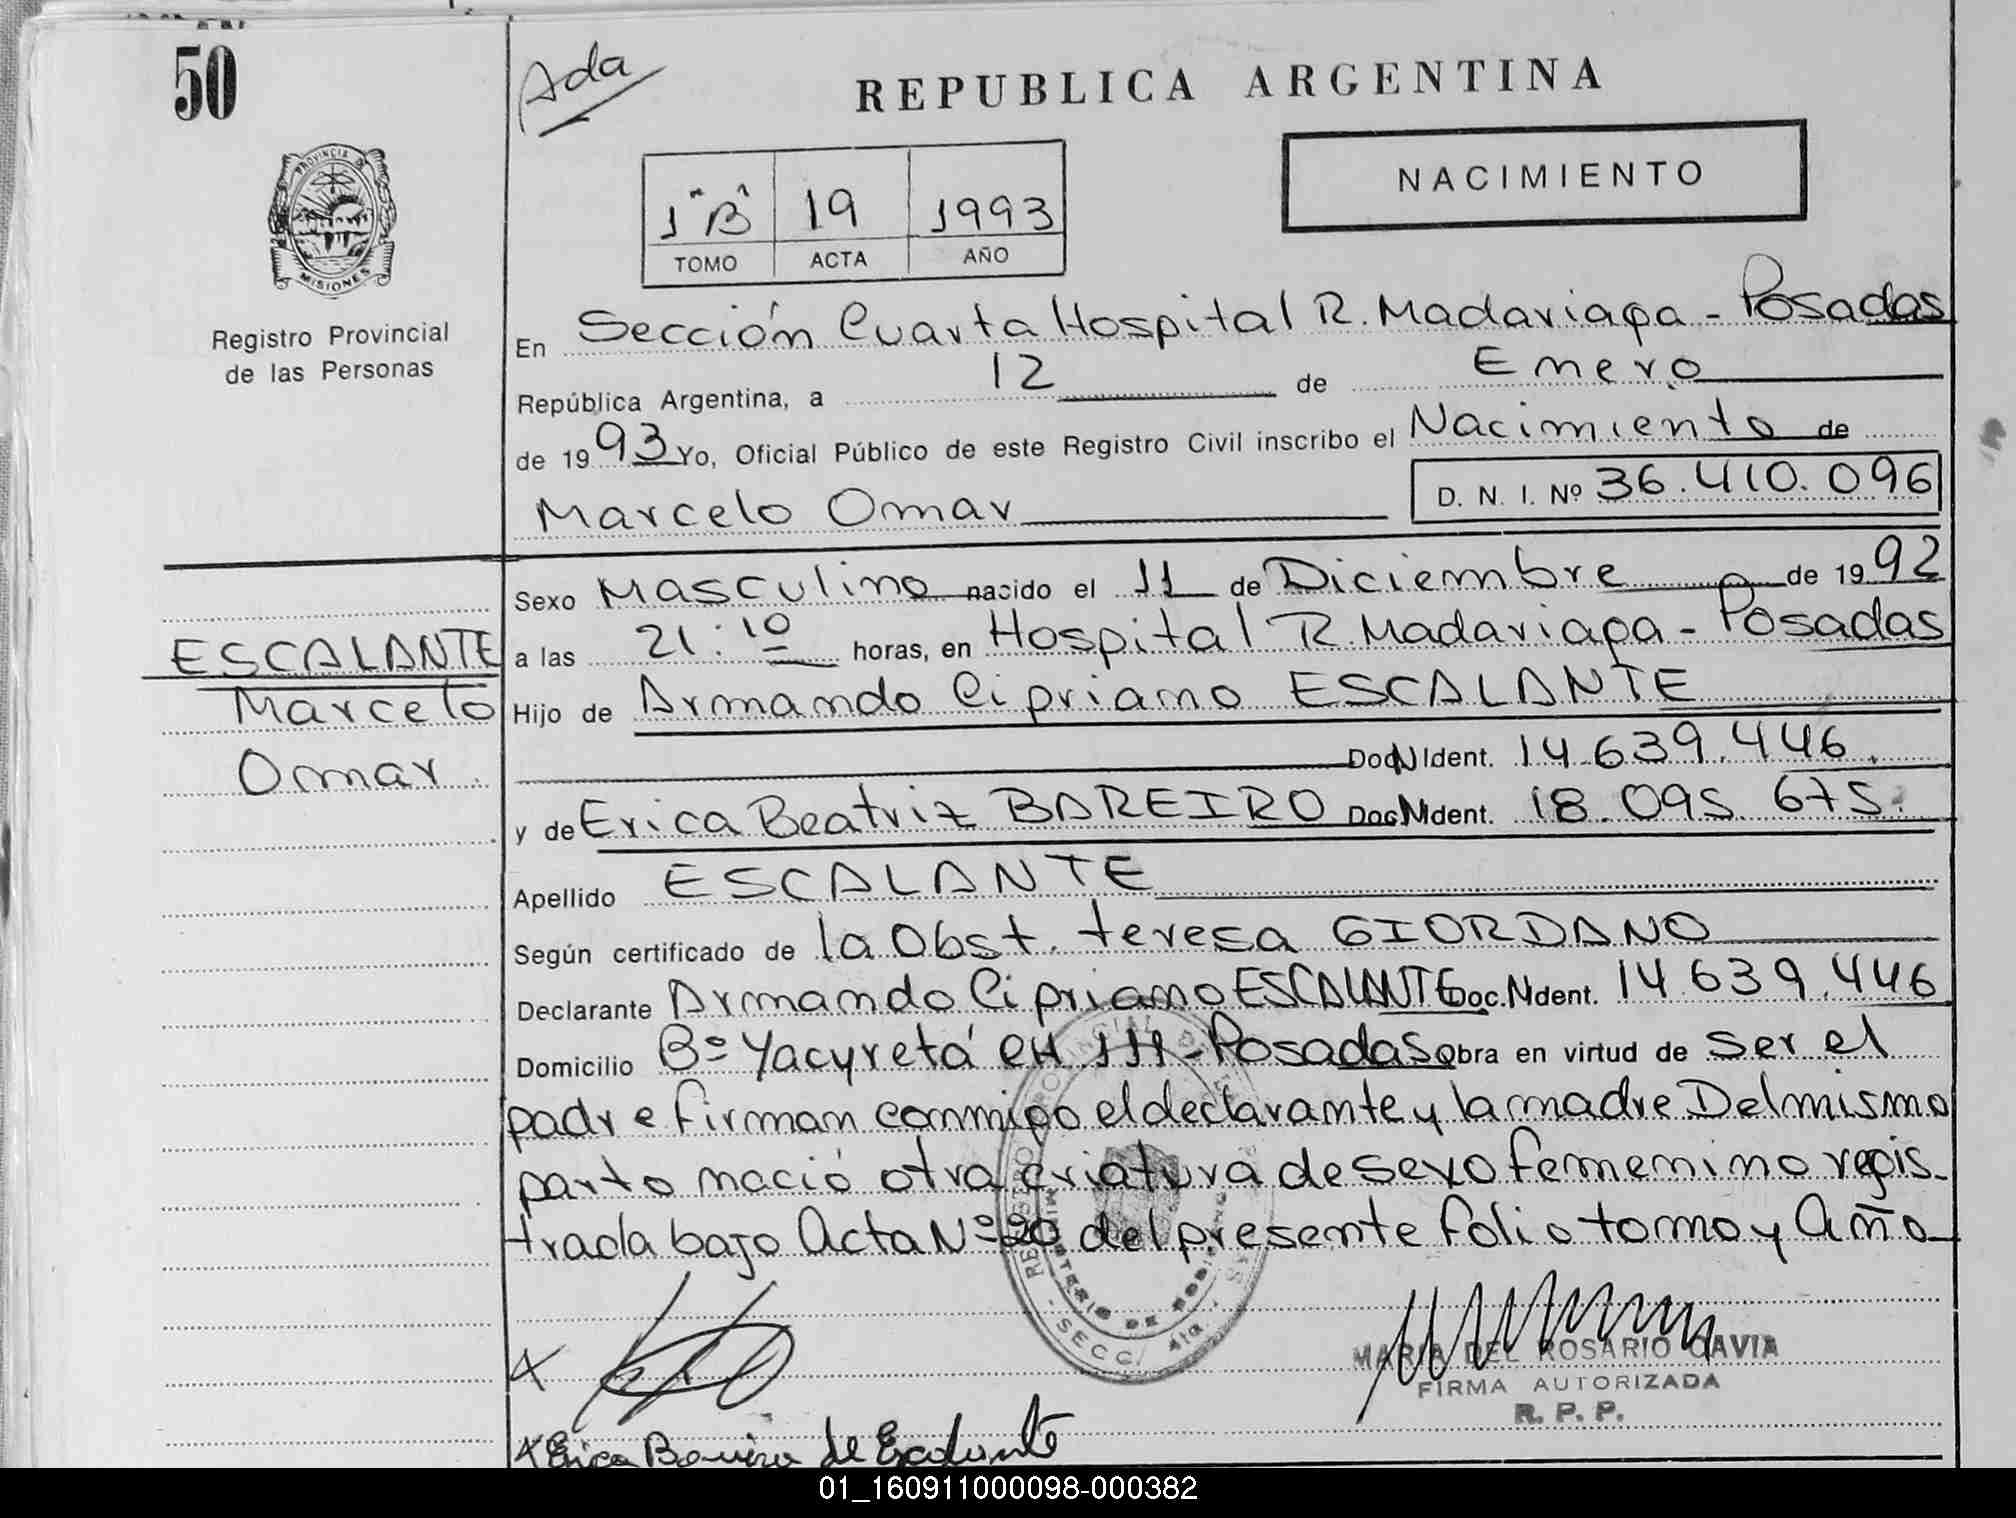 50
Ada
REPUBLICA ARGENTINA
NACIMIENTO
1"B" 19 1993
TOMO ACTA AÑO
PROVINCIA DE MISIONES
Registro Provincial
de las Personas
En Sección Cuarta Hospital R. Madariaga - Posadas
República Argentina, a 12 de Enero
de 1993 Yo, Oficial Público de este Registro Civil inscribo el Nacimiento de
Marcelo Omar D. N. I. Nº 36.410.096
Sexo Masculino nacido el 11 de Diciembre de 1992
ESCALANTE
Marcelo
Omar.
a las 21:10 horas, en Hospital R. Madariaga - Posadas
Hijo de Armando Cipriano ESCALANTE
Doc N Ident. 14.639.446.
y de Erica Beatriz BAREIRO Doc N Ident. 18.095.675.
Apellido ESCALANTE
Según certificado de la Obst. teresa GIORDANO
Declarante Armando Cipriano ESCALANTE Doc. N Ident. 14.639.446
Domicilio Bº Yacyretá CH 111 - Posadas obra en virtud de ser el
padre firman conmigo el declarante y la madre Del mismo
parto nació otra criatura de sexo femenino regis-
trada bajo Acta Nº 20 del presente folio tomo y Año
MARIA DEL ROSARIO CAVIA
FIRMA AUTORIZADA
R. P. P.
Erica Bareiro de Escalante
01_160911000098-000382